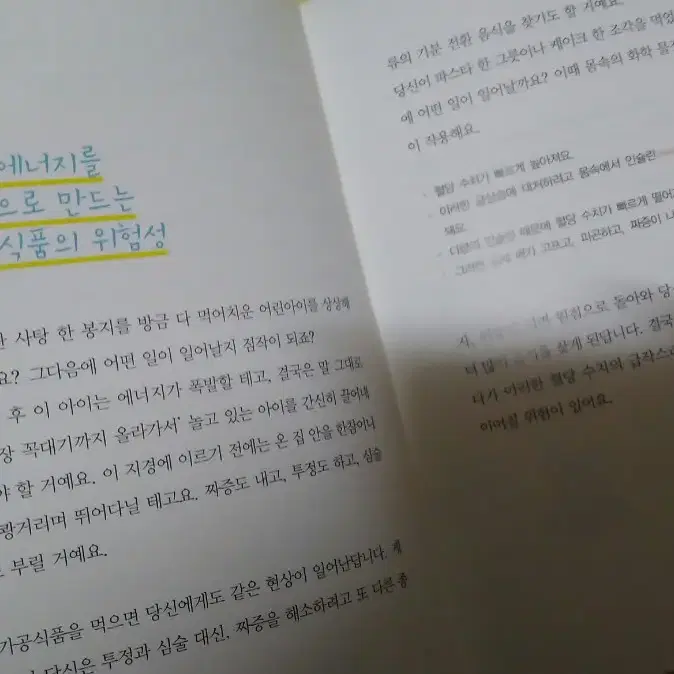 에너지를
으로 만드는
식품의 위험성
사탕 한 봉지를 방금 다 먹어치운 어린아이를 상상해
요? 그다음에 어떤 일이 일어날지 짐작이 되죠?
후 이 아이는 에너지가 폭발할 테고, 결국은 말 그대로
장 꼭대기까지 올라가서 놀고 있는 아이를 간신히 끌어내
야 할 거예요. 이 지경에 이르기 전에는 온 집 안을 한참이나
쾅거리며 뛰어다닐 테고요. 짜증도 내고, 투정도 하고, 심술
부릴 거예요.
가공식품을 먹으면 당신에게도 같은 현상이 일어난답니다. 계
당신은 투정과 심술 대신, 짜증을 해소하려고 또 다른 종
류의 기분 전환 음식을 찾기도 할 거예요.
당신이 파스타 한 그릇이나 케이크 한 조각을 먹었
에 어떤 일이 일어날까요? 이때 몸속의 화학 물
이 작용해요.
· 혈당 수치가 빠르게 높아져요.
· 이러한 급상승에 대처하려고 몸속에서 인슐린
· 다량의 인슐린 때문에 혈당 수치가 빠르게 떨어
돼요.
· 그러면 배가 고프고, 피곤하고, 짜증이 나
원점으로 돌아와 당
더 많이 찾게 된답니다. 결국
다가 이러한 혈당 수치의 급작스
이어질 위험이 있어요.